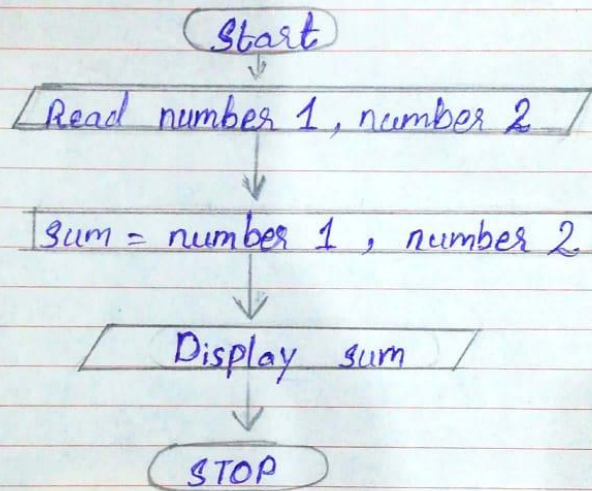 Start
Read number 1, number 2
sum = number 1, number 2
Display sum
STOP